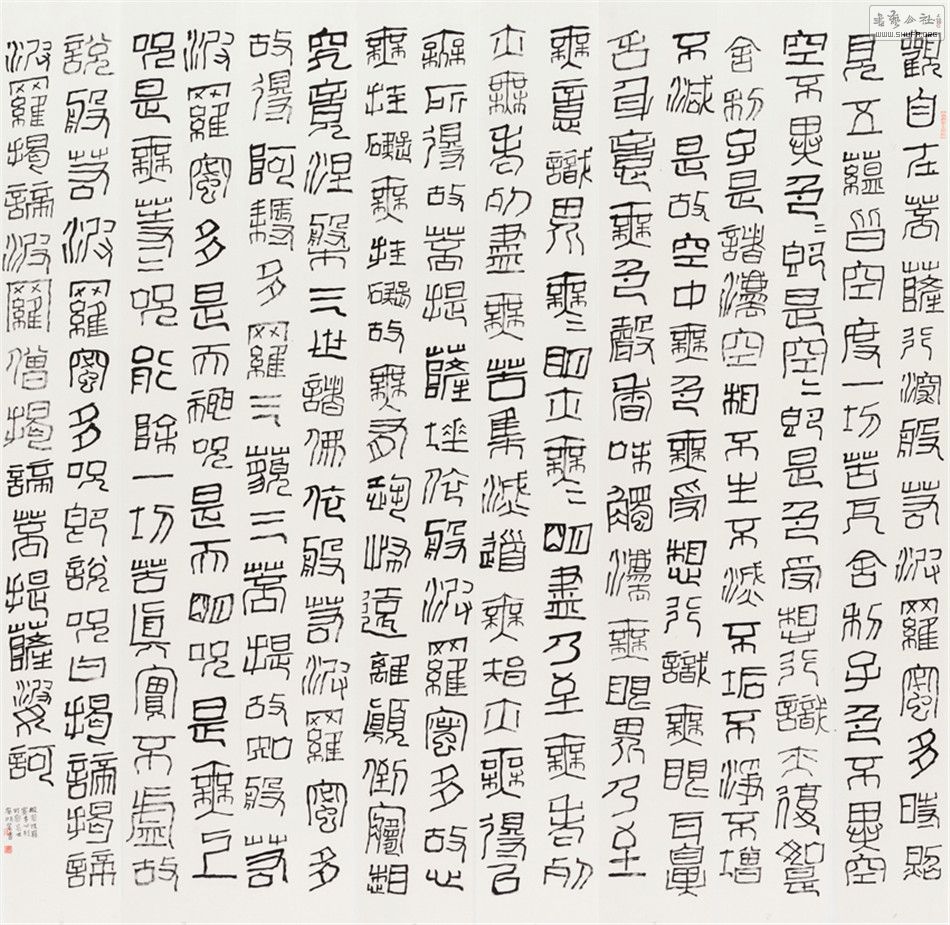 觀自在菩薩行深般若波羅蜜多時照
見五蘊皆空度一切苦厄舍利子色不異空
空不異色〻即是空〻即是色受想行識亦復如是
舍利子是諸法空相不生不滅不垢不淨不增
不減是故空中無色無受想行識無眼耳鼻
舌身意無色聲香味觸法無眼界乃至
無意識界無〻明亦無〻明盡乃至無老死
亦無老死盡無苦集滅道無智亦無得以
無所得故菩提薩埵依般波羅蜜多故心
無罣礙無罣礙故無有恐怖遠離顛倒夢想
究竟涅槃三世諸佛依般若波羅蜜多
故得阿耨多羅三藐三菩提故知般若
波羅蜜多是大神咒是大明咒是無上
咒是無等〻咒能除一切苦真實不虛故
說般若波羅蜜多咒即說咒曰揭諦揭諦
波羅揭諦波羅僧揭諦菩提薩婆訶
書藝公社
www.shufa.org